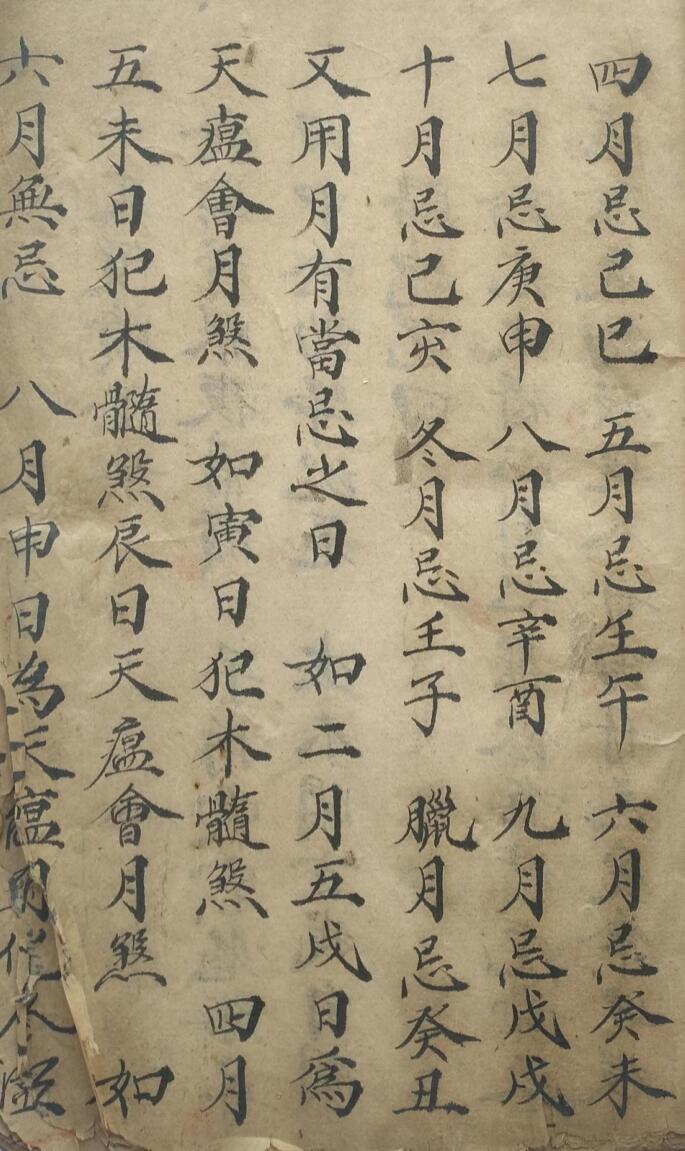 四月忌己巳 五月忌壬午 六月忌癸未
七月忌庚申 八月忌辛酉 九月忌戊戌
十月忌己亥 冬月忌壬子 臘月忌癸丑
又用月有當忌之日 如二月五戌日為
天瘟會月煞 如寅日犯木髓煞 四月
五未日犯木髓煞辰日天瘟會月煞 如
六月無忌 八月申日為天瘟月